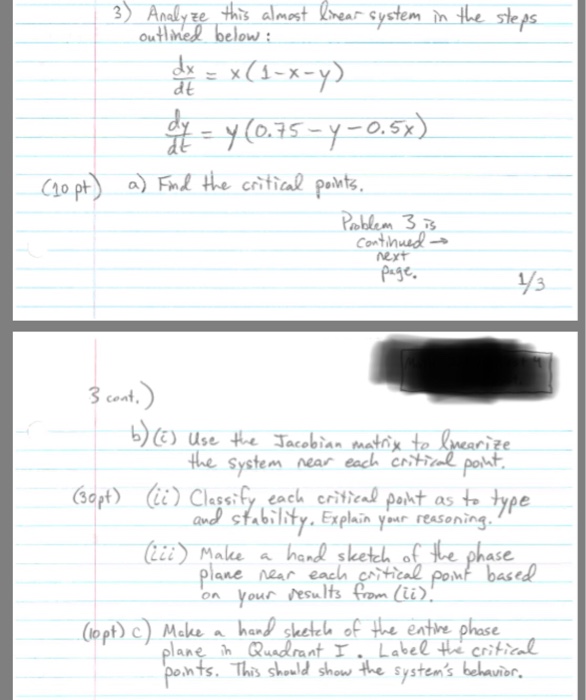 3) Analyze this almost linear system in the steps
outlined below:
dx/dt = x(1-x-y)
dy/dt = y(0.75-y-0.5x)
(10 pt) a) Find the critical points.
Problem 3 is
continued →
next
page.
1/3
3 cont.)
b)(i) Use the Jacobian matrix to linearize
the system near each critical point.
(30pt) (ii) Classify each critical point as to type
and stability. Explain your reasoning.
(iii) Make a hand sketch of the phase
plane near each critical point based
on your results from (ii).
(10pt) c) Make a hand sketch of the entire phase
plane in Quadrant I. Label the critical
points. This should show the system's behavior.